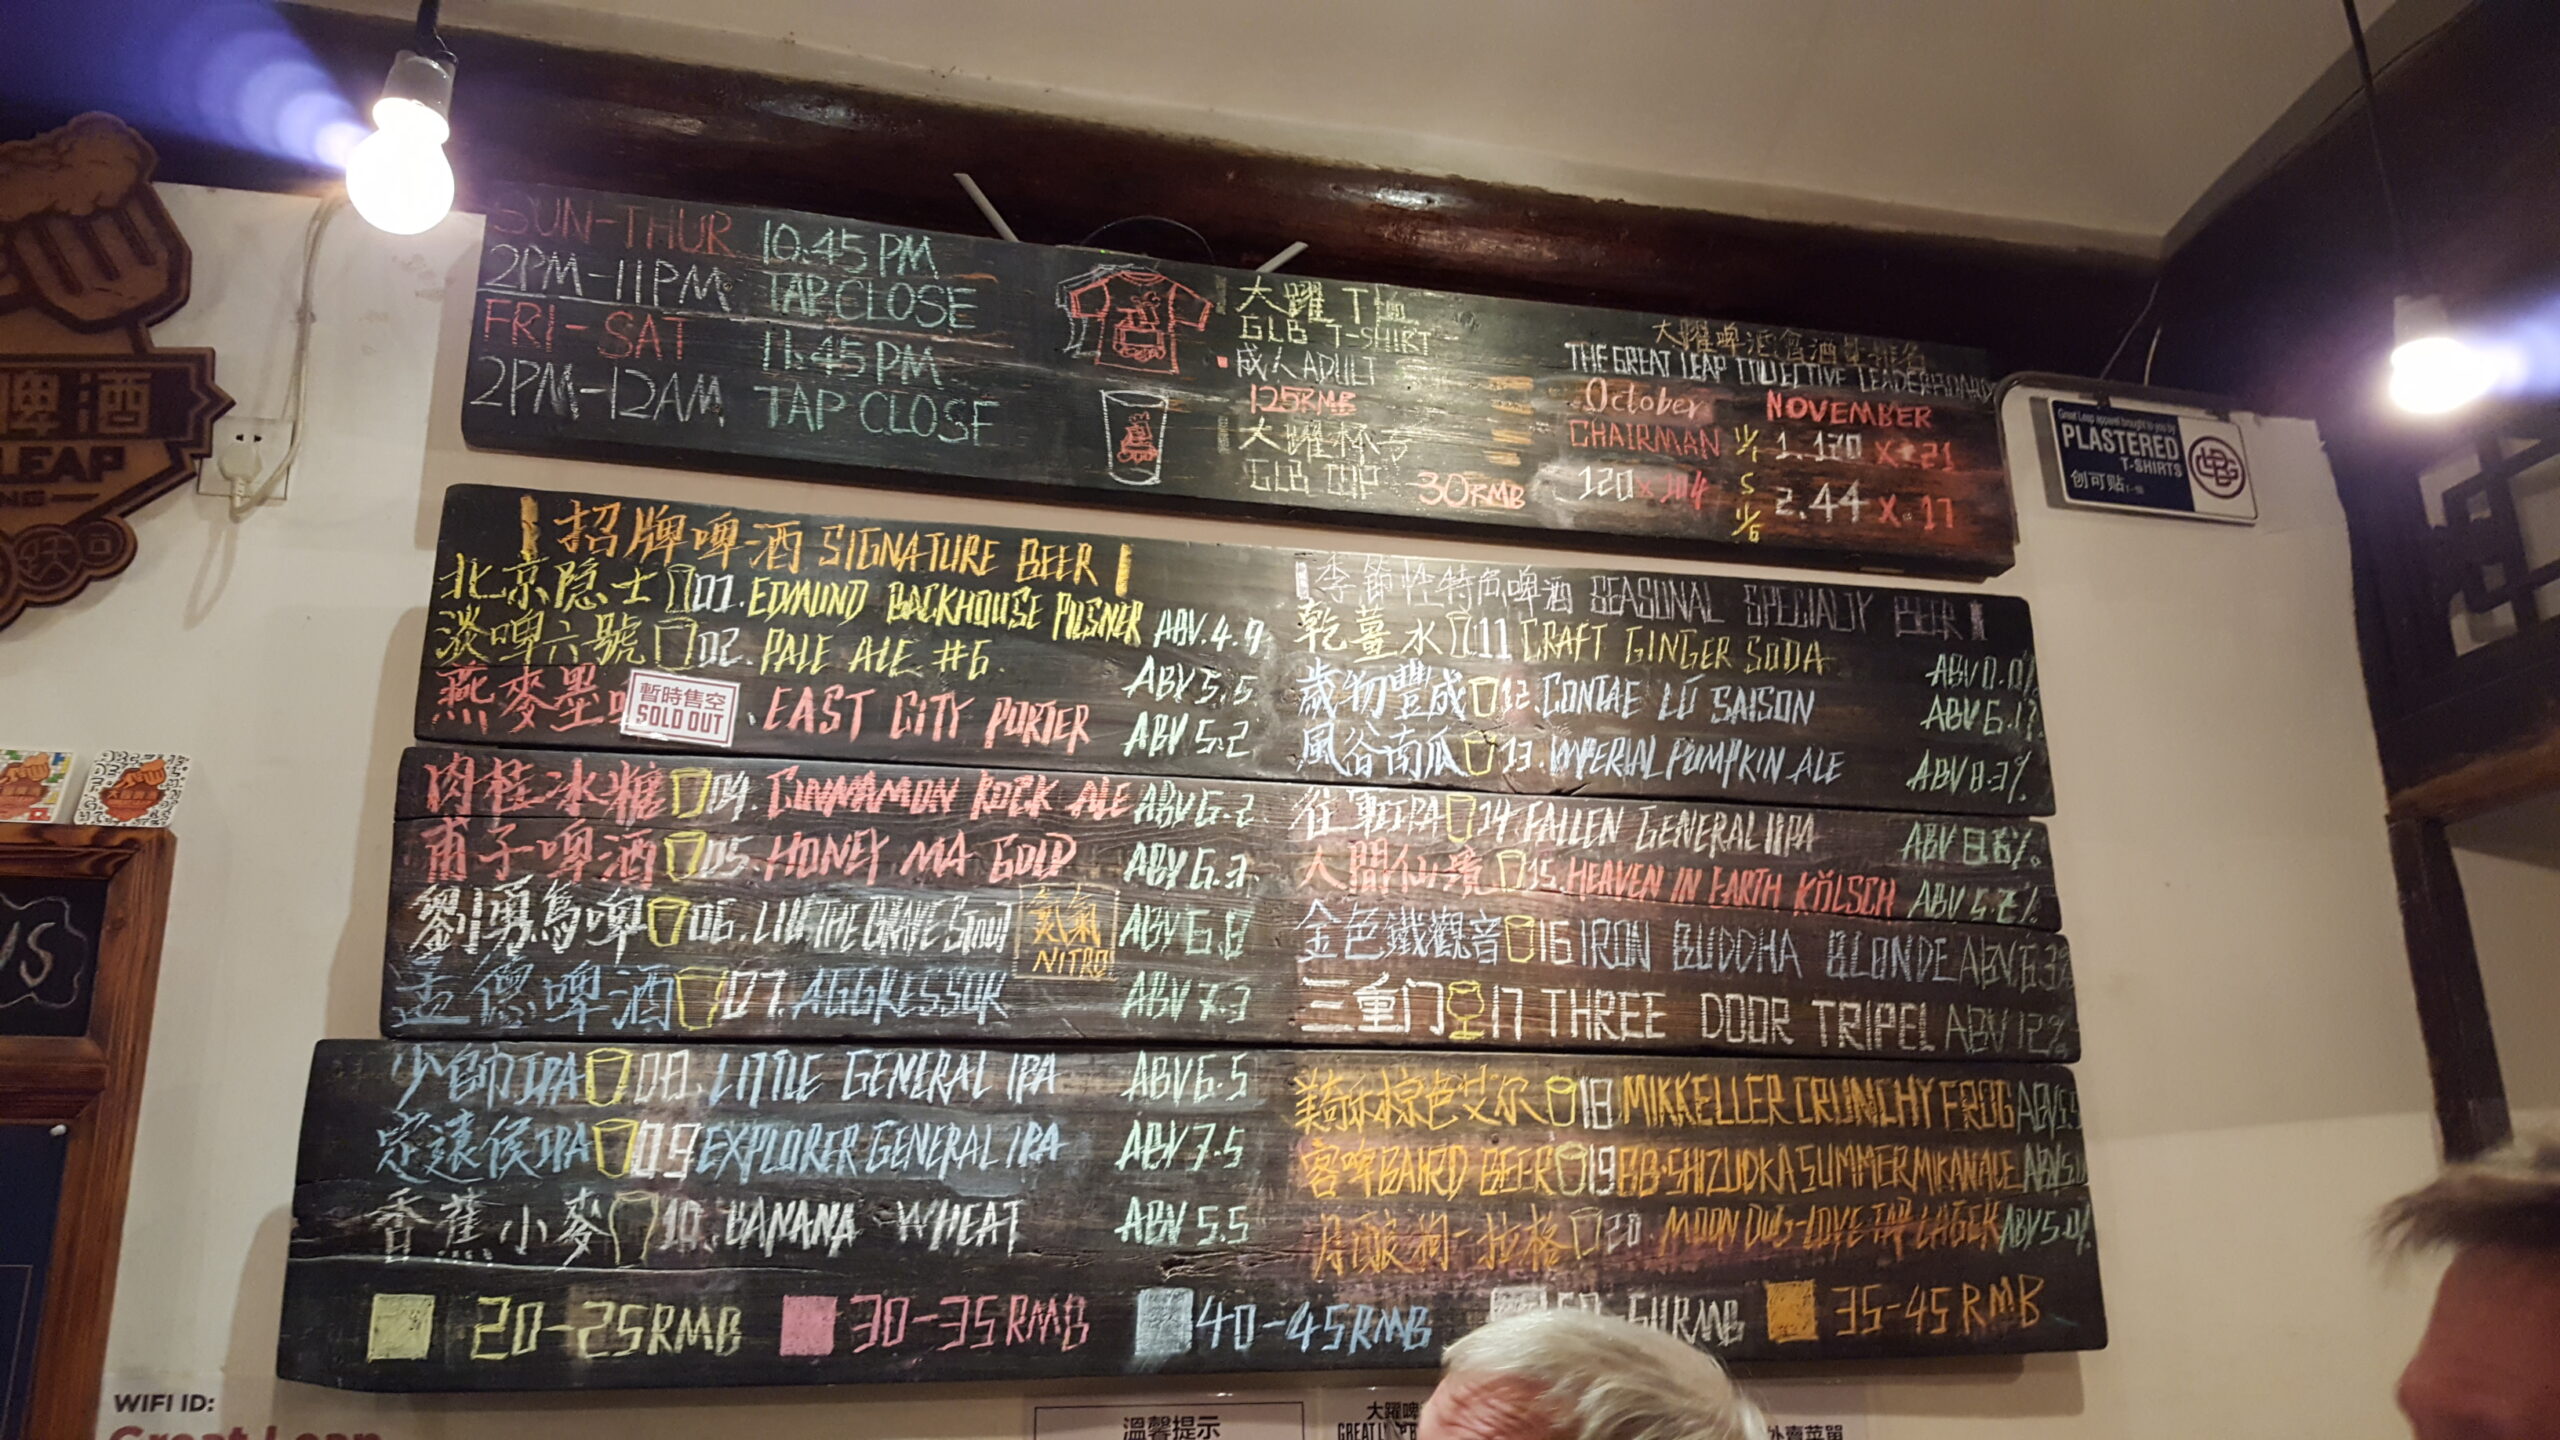 SUN-THUR 10:45 PM
2PM-11PM TAP CLOSE
FRI-SAT 11:45 PM
2PM-12AM TAP CLOSE
大躍 T恤
GLB T-SHIRT
成人 ADULT
125RMB
大躍杯子
GLB CUP 30RMB
大躍啤酒會酒量排名
THE GREAT LEAP COLLECTIVE LEADERBOARD
October NOVEMBER
CHAIRMAN 1. 170 X 21
120 X 104 2. 44 X 17
Great Leap apparel brought to you by
PLASTERED
T-SHIRTS
创可贴
啤酒
LEAP
招牌啤酒 SIGNATURE BEER
北京隐士 01. EDMUND BACKHOUSE PILSNER ABV. 4.9
淡啤六號 02. PALE ALE #6. ABV 5.5
燕麥墨 暫時售空 SOLD OUT . EAST CITY PORTER ABV 5.2
肉桂冰糖 04. CINNAMON ROCK ALE ABV 6.2
甫子啤酒 05. HONEY MA GOLD ABV 6.3
劉勇烏啤 06. LIU THE BRAVE STOUT 氮氣 NITRO! ABV 6.8
孟德啤酒 07. AGGRESSOR ABV 7.3
少帥IPA 08. LITTLE GENERAL IPA ABV 6.5
定遠侯IPA 09 EXPLORER GENERAL IPA ABV 7.5
香蕉小麥 10. BANANA WHEAT ABV 5.5
季節性特色啤酒 SEASONAL SPECIALTY BEER
乾薑水 11 CRAFT GINGER SODA ABV 0.0%
歲物豐成 12. CONTAE LÚ SAISON ABV 6.1%
風谷南瓜 13. IMPERIAL PUMPKIN ALE ABV 8.3%
IPA 14. FALLEN GENERAL IIPA ABV 8.6%
人間仙境 15. HEAVEN IN EARTH KÖLSCH ABV
金色鐵觀音 16 IRON BUDDHA BLONDE ABV 6.3%
三重门 17 THREE DOOR TRIPEL ABV 12%
美奇乐棕色艾尔 18 MIKKELLER CRUNCHY FROG ABV
客啤BAIRD BEER 19 BB·SHIZUOKA SUMMER MIKAN ALE ABV
月酿狗-拉格 20. MOON DOG-LOVE TAP LAGER ABV 5.0%
20-25RMB 30-35RMB 40-45RMB RMB 35-45 RMB
WIFI ID:
Great Leap
溫馨提示
大躍啤
外賣菜單